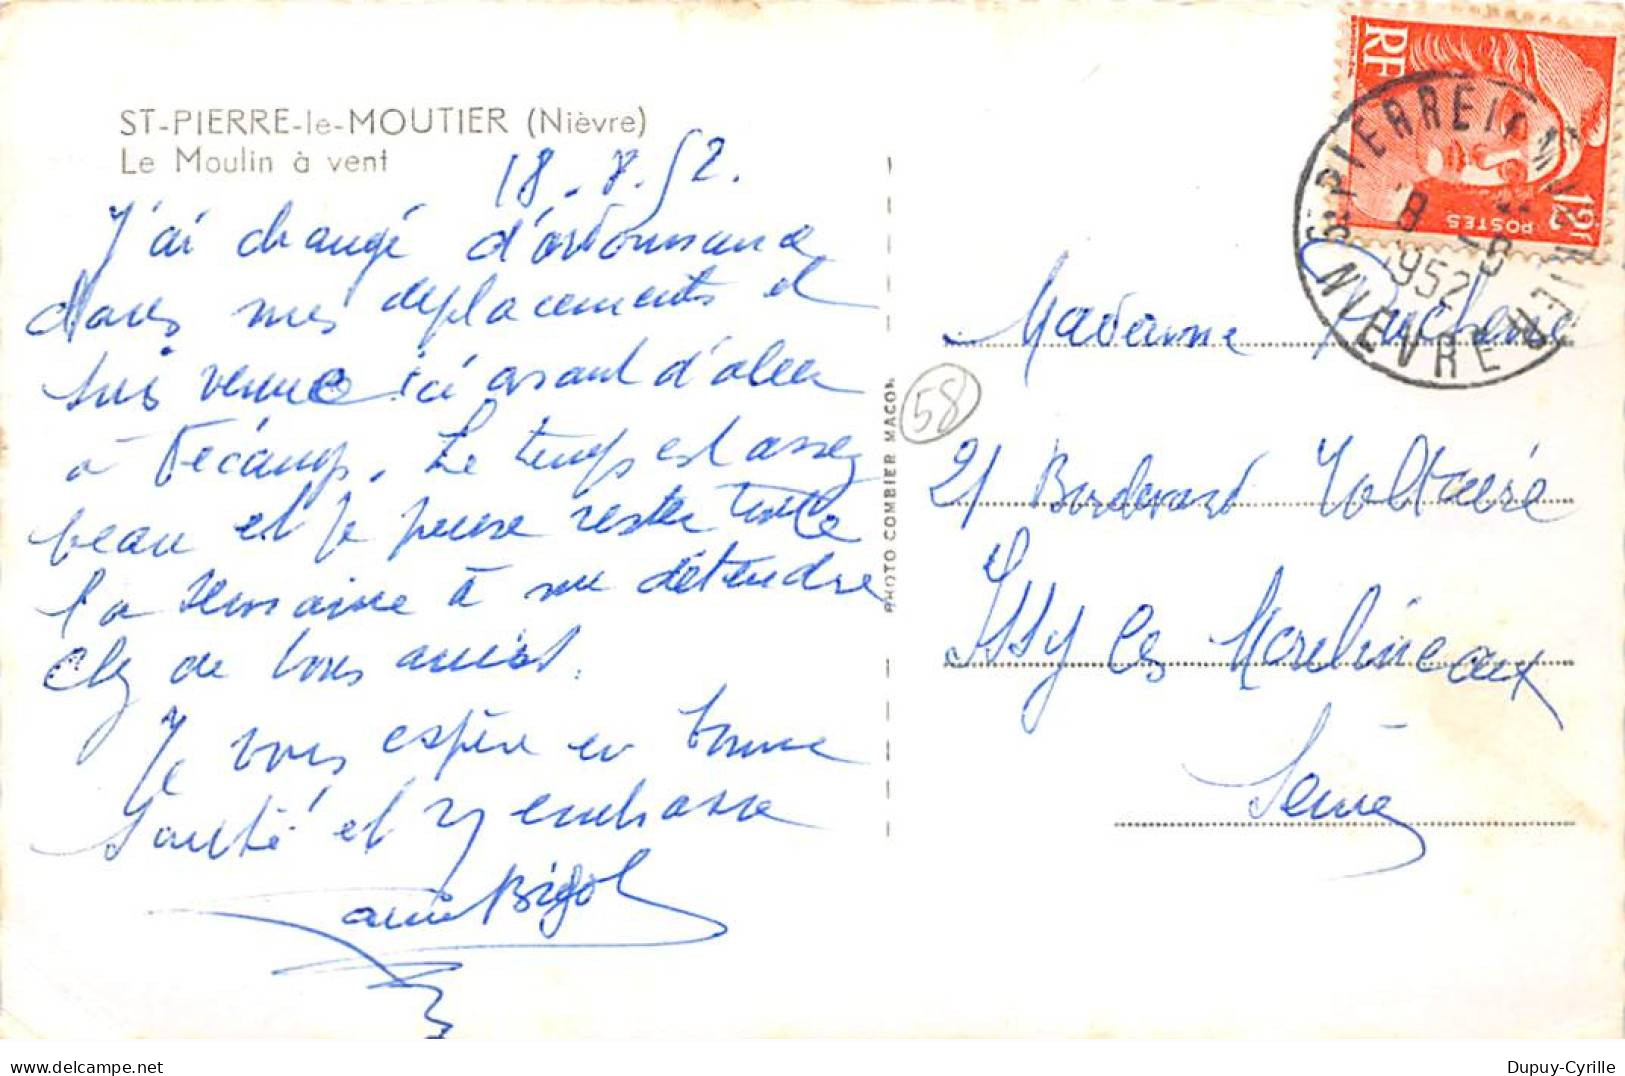 ST-PIERRE-le-MOUTIER (Nièvre)
Le Moulin à vent
18.8.52.
J'ai changé d'ordonnance
dans mes déplacements et
suis venue ici avant d'aller
à Fécamp. Le temps est assez
beau et je pense rester toute
la semaine à me détendre
chez de bons amis.
Je vous espère en bonne
santé et vous embrasse
Bigot
PHOTO COMBIER MACON
58
RF
POSTES
12F
ST PIERRE LE MOUTIER
18 -8
1952
NIEVRE
Madame
21 Boulevard Voltaire
Issy les Moulineaux
Seine
Dupuy-Cyrille